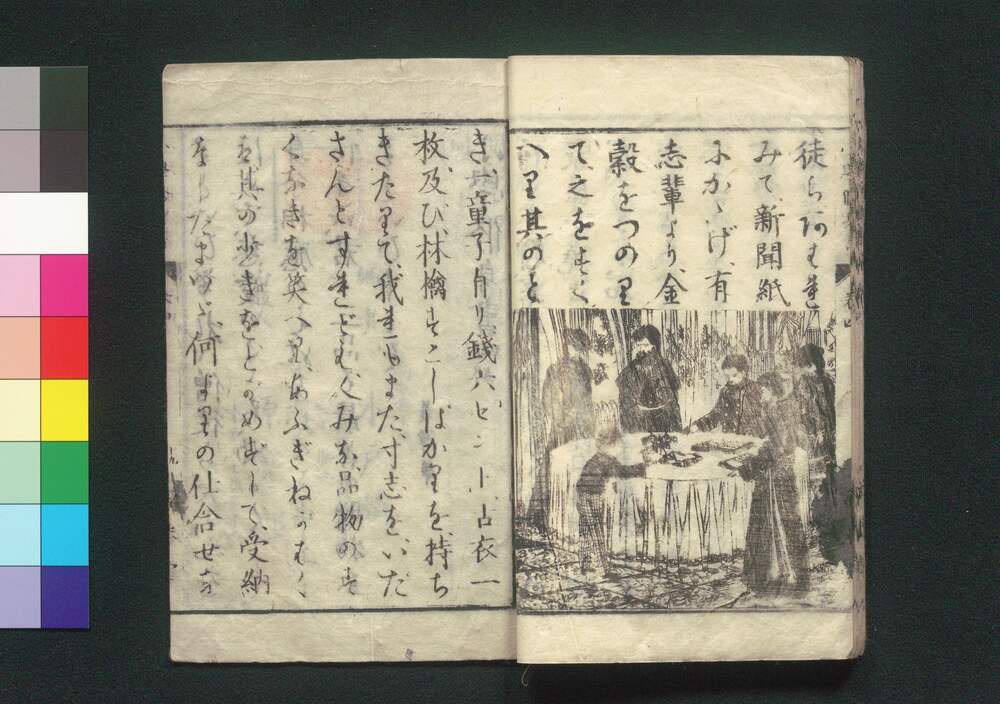 徒らあつむ
みて新聞紙
にかゝげ、有
志輩より、金
穀をつのり
て之をすく
へり其のと
き、一童子自り錢六セント古衣一
枚、及び林檎すこしばかりを、持ち
きたりて、我れもまた、寸志をいだ
さんとすれども、みな品物のす
くなきを笑へり、あふぎねがはく
は其の少きをとがめずして、受納
なしたまはゞ、何よりの仕合せな